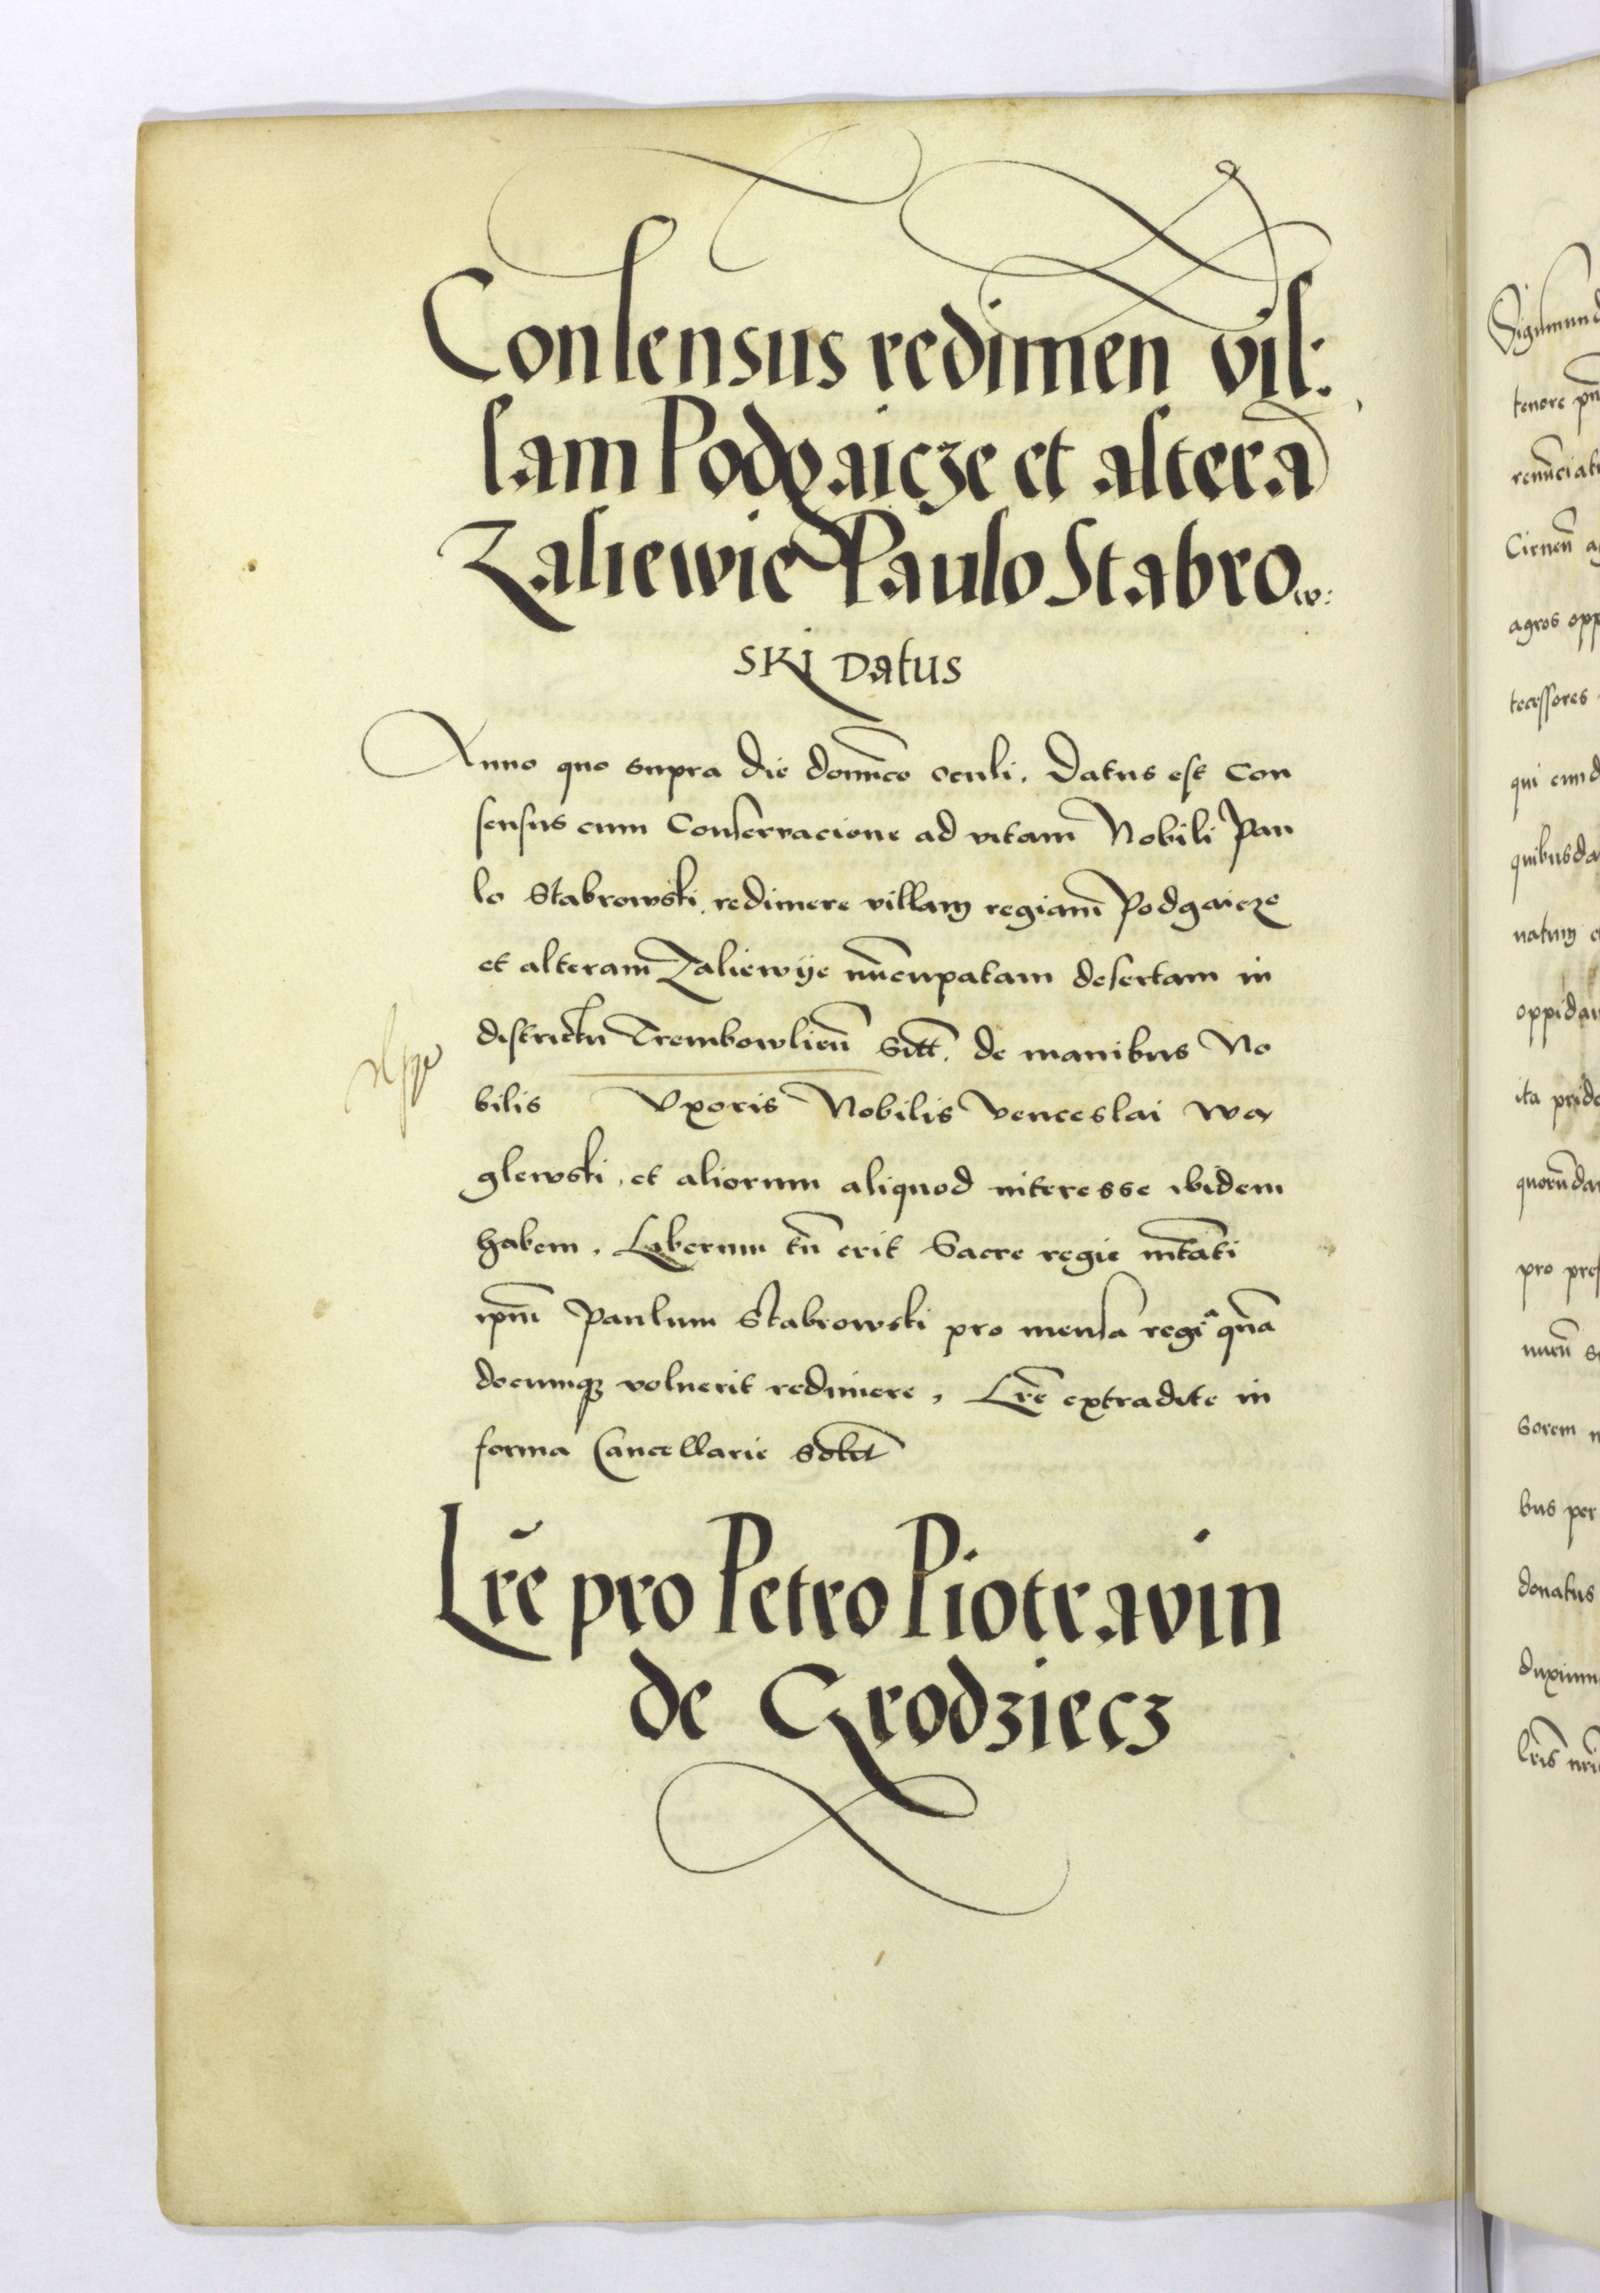 Consensus redimen vil:
lam Podgaicze et alterã
Zaliewie Paulo Stabrow:
ski datus
Anno quo supra die domĩco oculi. Datus est Con
sensus cum Conservacione ad vitam Nobili Pau
lo Stabrowski redimere villam regiam Podgaicze
et alteram Zaliewije nũcupatam desertam in
districtu Trembowlieñ sitt. de manibus No
bilis Uxoris Nobilis Venceslai Wa
glewski, et aliorum aliquod interesse ibidem
habem. Liberum tñ erit Sacre regie mtãti
ipm̃ Paulum Stabrowski pro mensa regia qña
documq3 voluerit redimere, Lr̃e extradite in
forma Cancellarie
Lr̃e pro Petro Piotravin
de Grodziecz
Sigismund
tenore pñ
renũciatu
Cirneñ a
agros opp
tecessores
qui eund
quibusda
natum
oppidan
ita pride
quorũdam
pro pres
sorem
bus per
donatus
duximu
lr̃is nr̃i